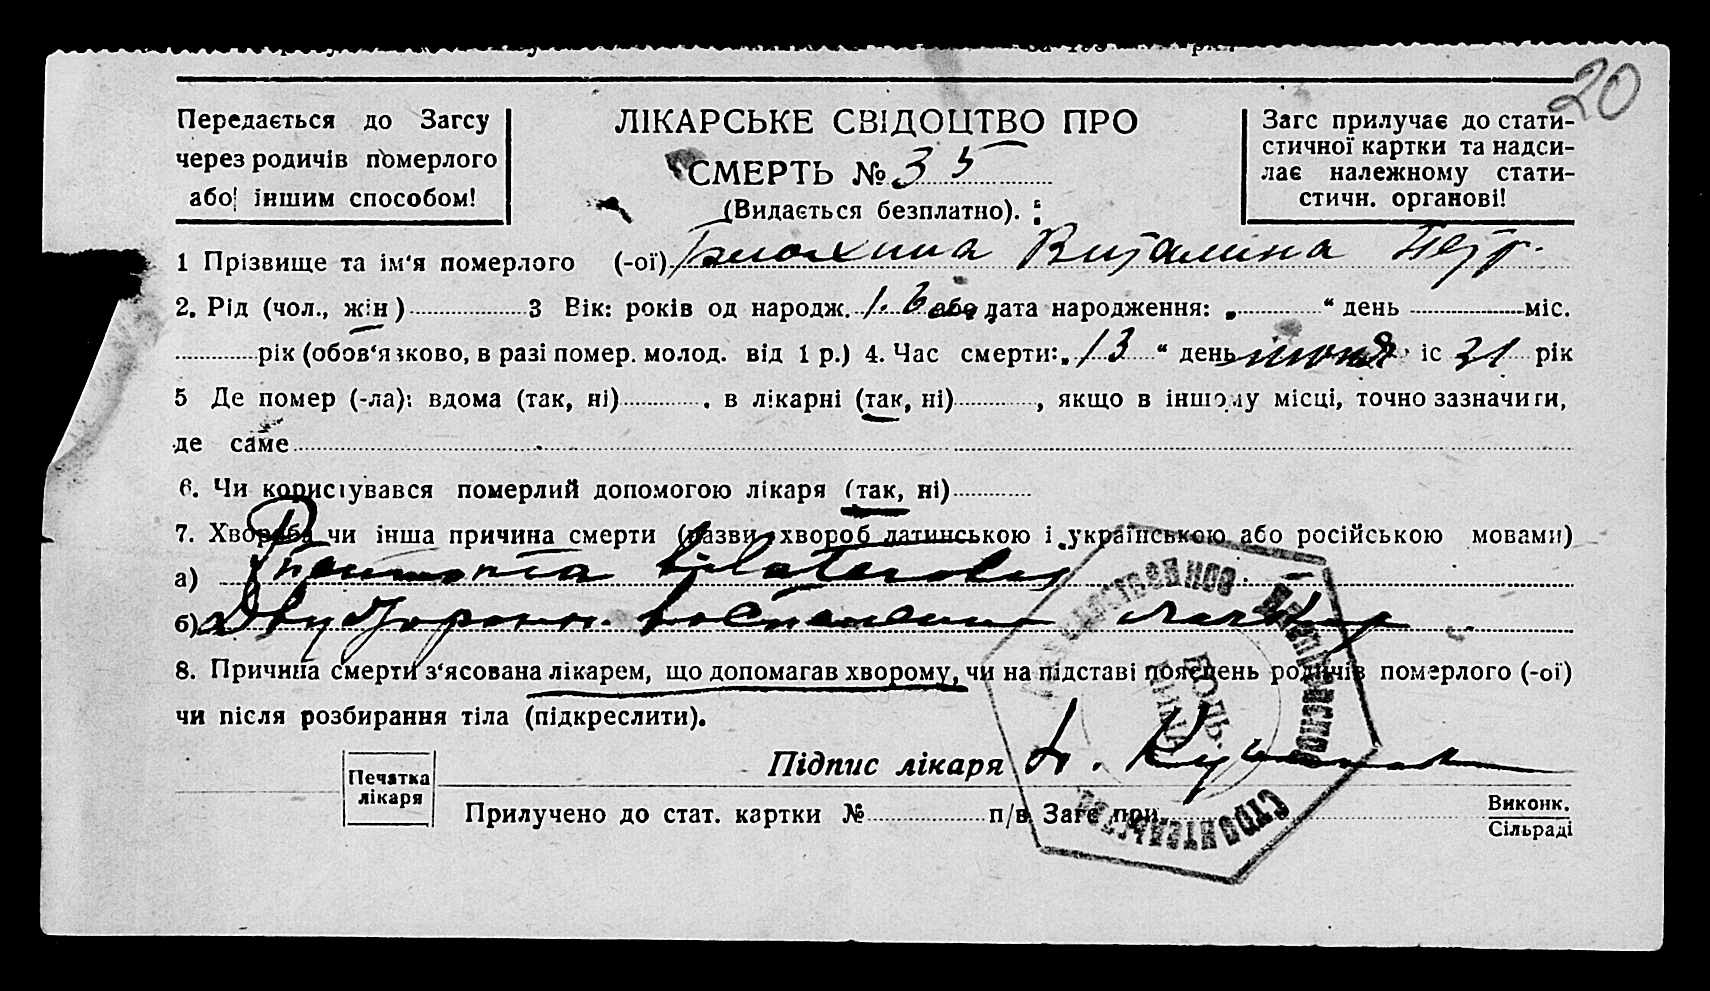 20
Передається до Загсу
через родичів померлого
або іншим способом!
ЛІКАРСЬКЕ СВІДОЦТВО ПРО
СМЕРТЬ № 35
(Видається безплатно).
Загс прилучає до стати-
стичної картки та надси-
лає належному стати-
стичн. органові!
1 Прізвище та ім'я померлого (-ої) Виталина Петр.
2. Рід (чол., жін) 3 Вік: років од народж. 1. 6 або дата народження: „ “ день міс.
рік (обов'язково, в разі помер. молод. від 1 р.) 4. Час смерти: „13“ день июня іс 31 рік
5 Де помер (-ла): вдома (так, ні) , в лікарні (так, ні) , якщо в іншому місці, точно зазначити,
де саме
6. Чи користувався померлий допомогою лікаря (так, ні)
7. Хвороба чи інша причина смерти (назви хвороб латинською і українською або російською мовами)
а) Pneumonia bilateralis
б) Двусторонн. воспаление легких
8. Причина смерти з'ясована лікарем, що допомагав хворому, чи на підставі пояснень родичів померлого (-ої)
чи після розбирання тіла (підкреслити).
Підпис лікаря
Печатка
лікаря
Прилучено до стат. картки № п/в Загс при
Виконк.
Сільраді
СТРОИТЕЛЬСТВА